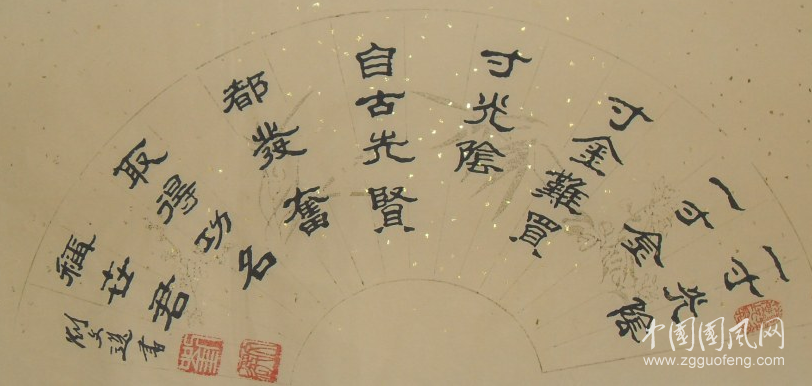 一寸光陰
一寸金
寸金難買
寸光陰
自古先賢
都發奮
取得功名
稱世君
劉文選書
中国国风网
www.zgguofeng.com